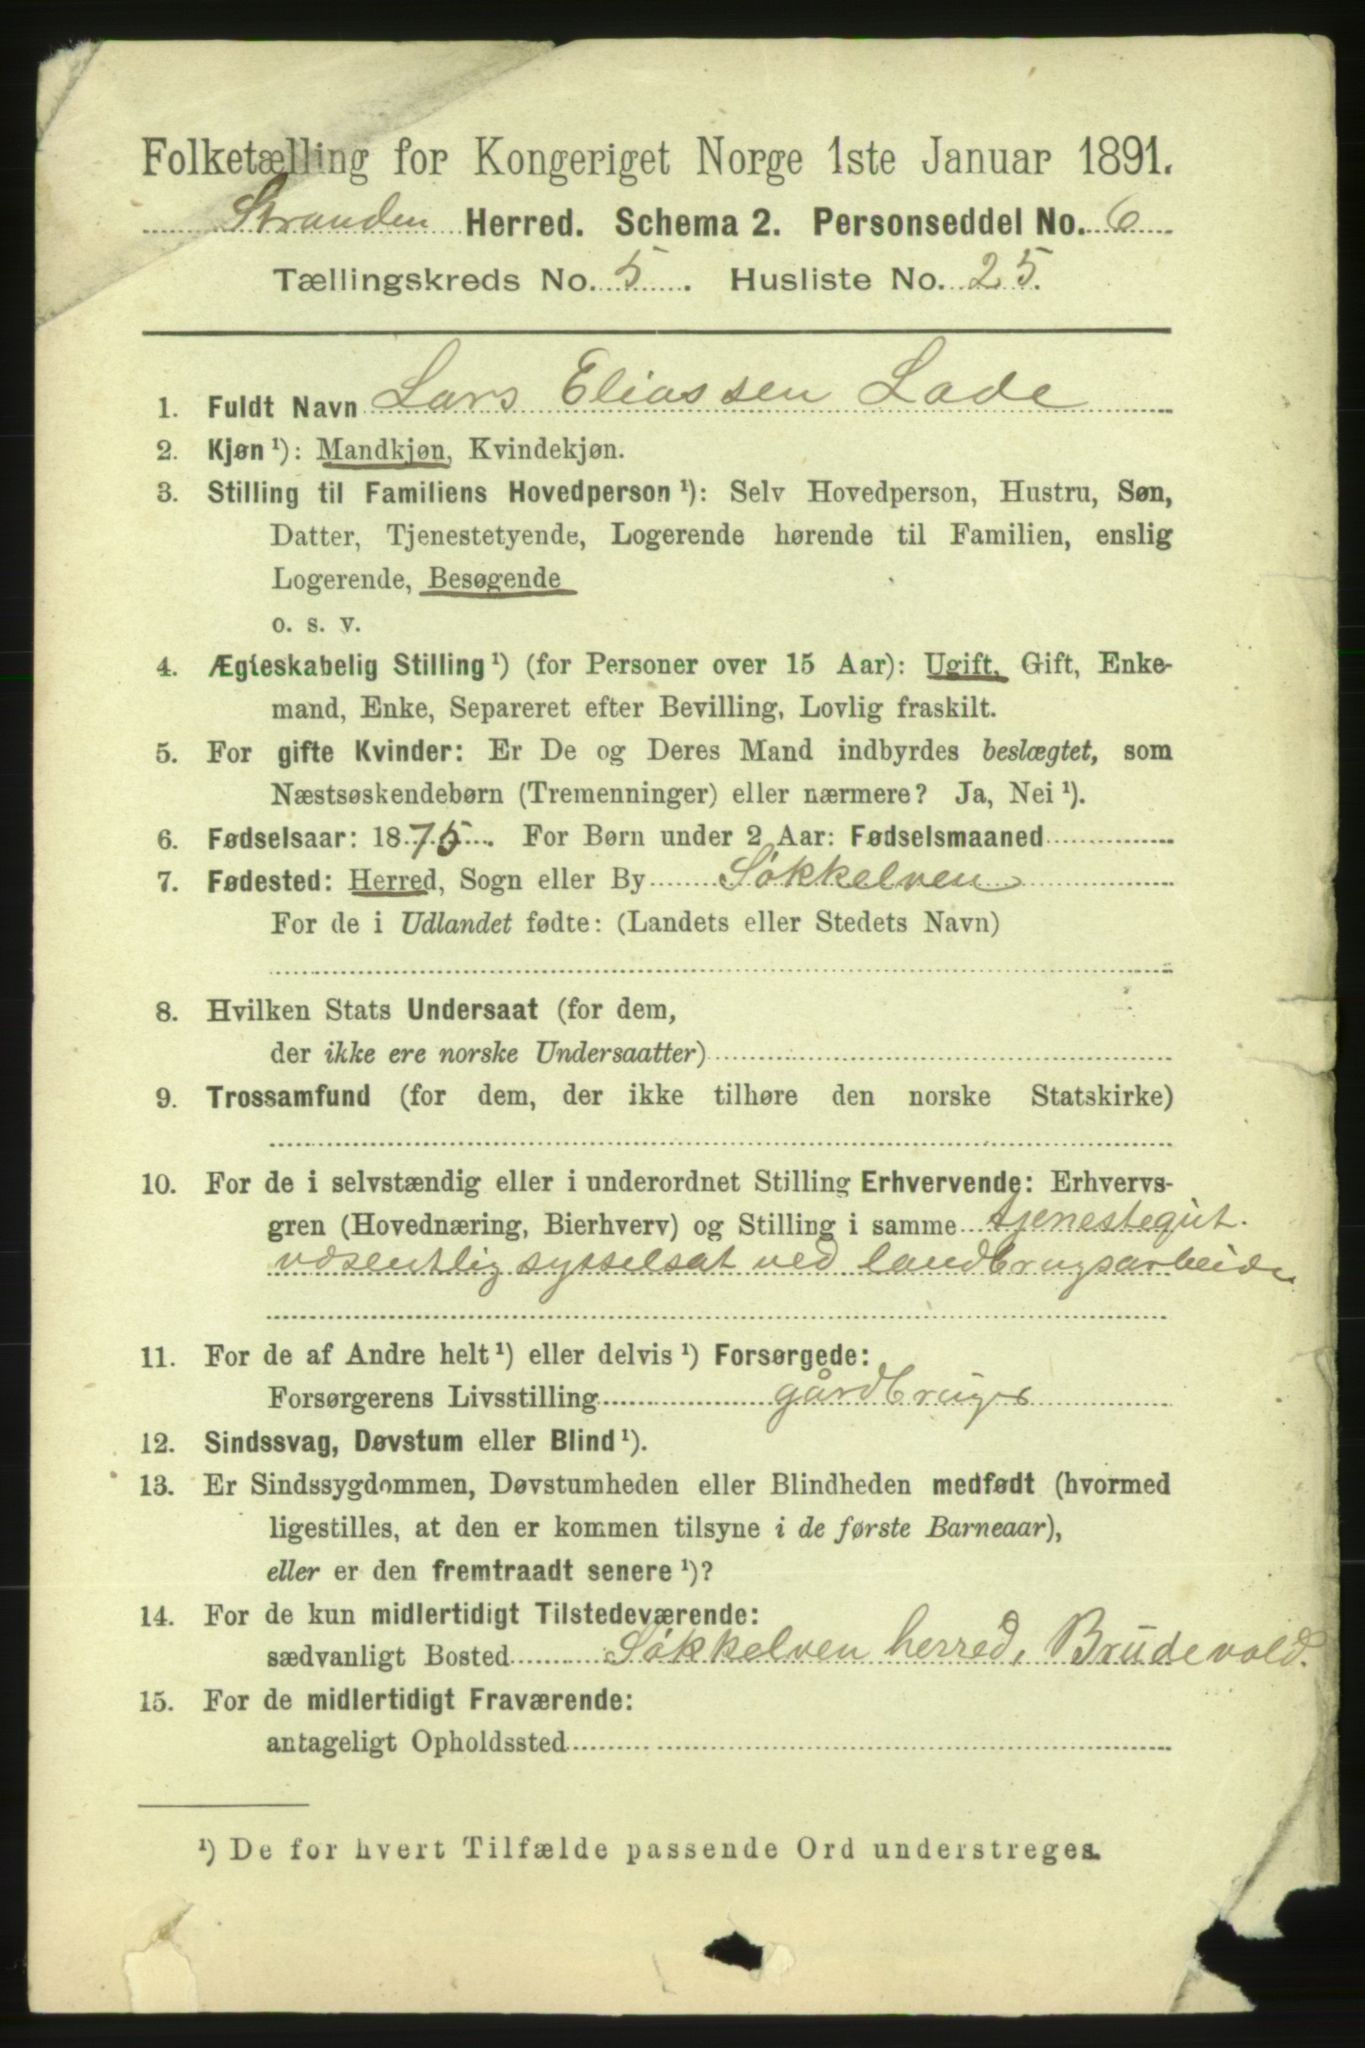 Folketælling for Kongeriget Norge 1ste Januar 1891.
Stranden Herred. Schema 2. Personseddel No. 6
Tællingskreds No. 5. Husliste No. 25.
1. Fuldt Navn Lars Eliassen Lade
2. Kjøn ¹): Mandkjøn, Kvindekjøn.
3. Stilling til Familiens Hovedperson ¹): Selv Hovedperson, Hustru, Søn,
Datter, Tjenestetyende, Logerende hørende til Familien, enslig
Logerende, Besøgende
o. s. v.
4. Ægteskabelig Stilling ¹) (for Personer over 15 Aar): Ugift, Gift, Enke-
mand, Enke, Separeret efter Bevilling, Lovlig fraskilt.
5. For gifte Kvinder: Er De og Deres Mand indbyrdes beslægtet, som
Næstsøskendebørn (Tremenninger) eller nærmere? Ja, Nei ¹).
6. Fødselsaar: 1875. For Børn under 2 Aar: Fødselsmaaned
7. Fødested: Herred, Sogn eller By Søkkelven
For de i Udlandet fødte: (Landets eller Stedets Navn)
8. Hvilken Stats Undersaat (for dem,
der ikke ere norske Undersaatter)
9. Trossamfund (for dem, der ikke tilhøre den norske Statskirke)
10. For de i selvstændig eller i underordnet Stilling Erhvervende: Erhvervs-
gren (Hovednæring, Bierhverv) og Stilling i samme tjenestegut.
væsentlig sysselsat ved landbrugsarbeide
11. For de af Andre helt ¹) eller delvis ¹) Forsørgede:
Forsørgerens Livsstilling gårdbruger
12. Sindssvag, Døvstum eller Blind ¹).
13. Er Sindssygdommen, Døvstumheden eller Blindheden medfødt (hvormed
ligestilles, at den er kommen tilsyne i de første Barneaar),
eller er den fremtraadt senere ¹)?
14. For de kun midlertidigt Tilstedeværende:
sædvanligt Bosted Søkkelven herred, Brudevold.
15. For de midlertidigt Fraværende:
antageligt Opholdssted
¹) De for hvert Tilfælde passende Ord understreges.